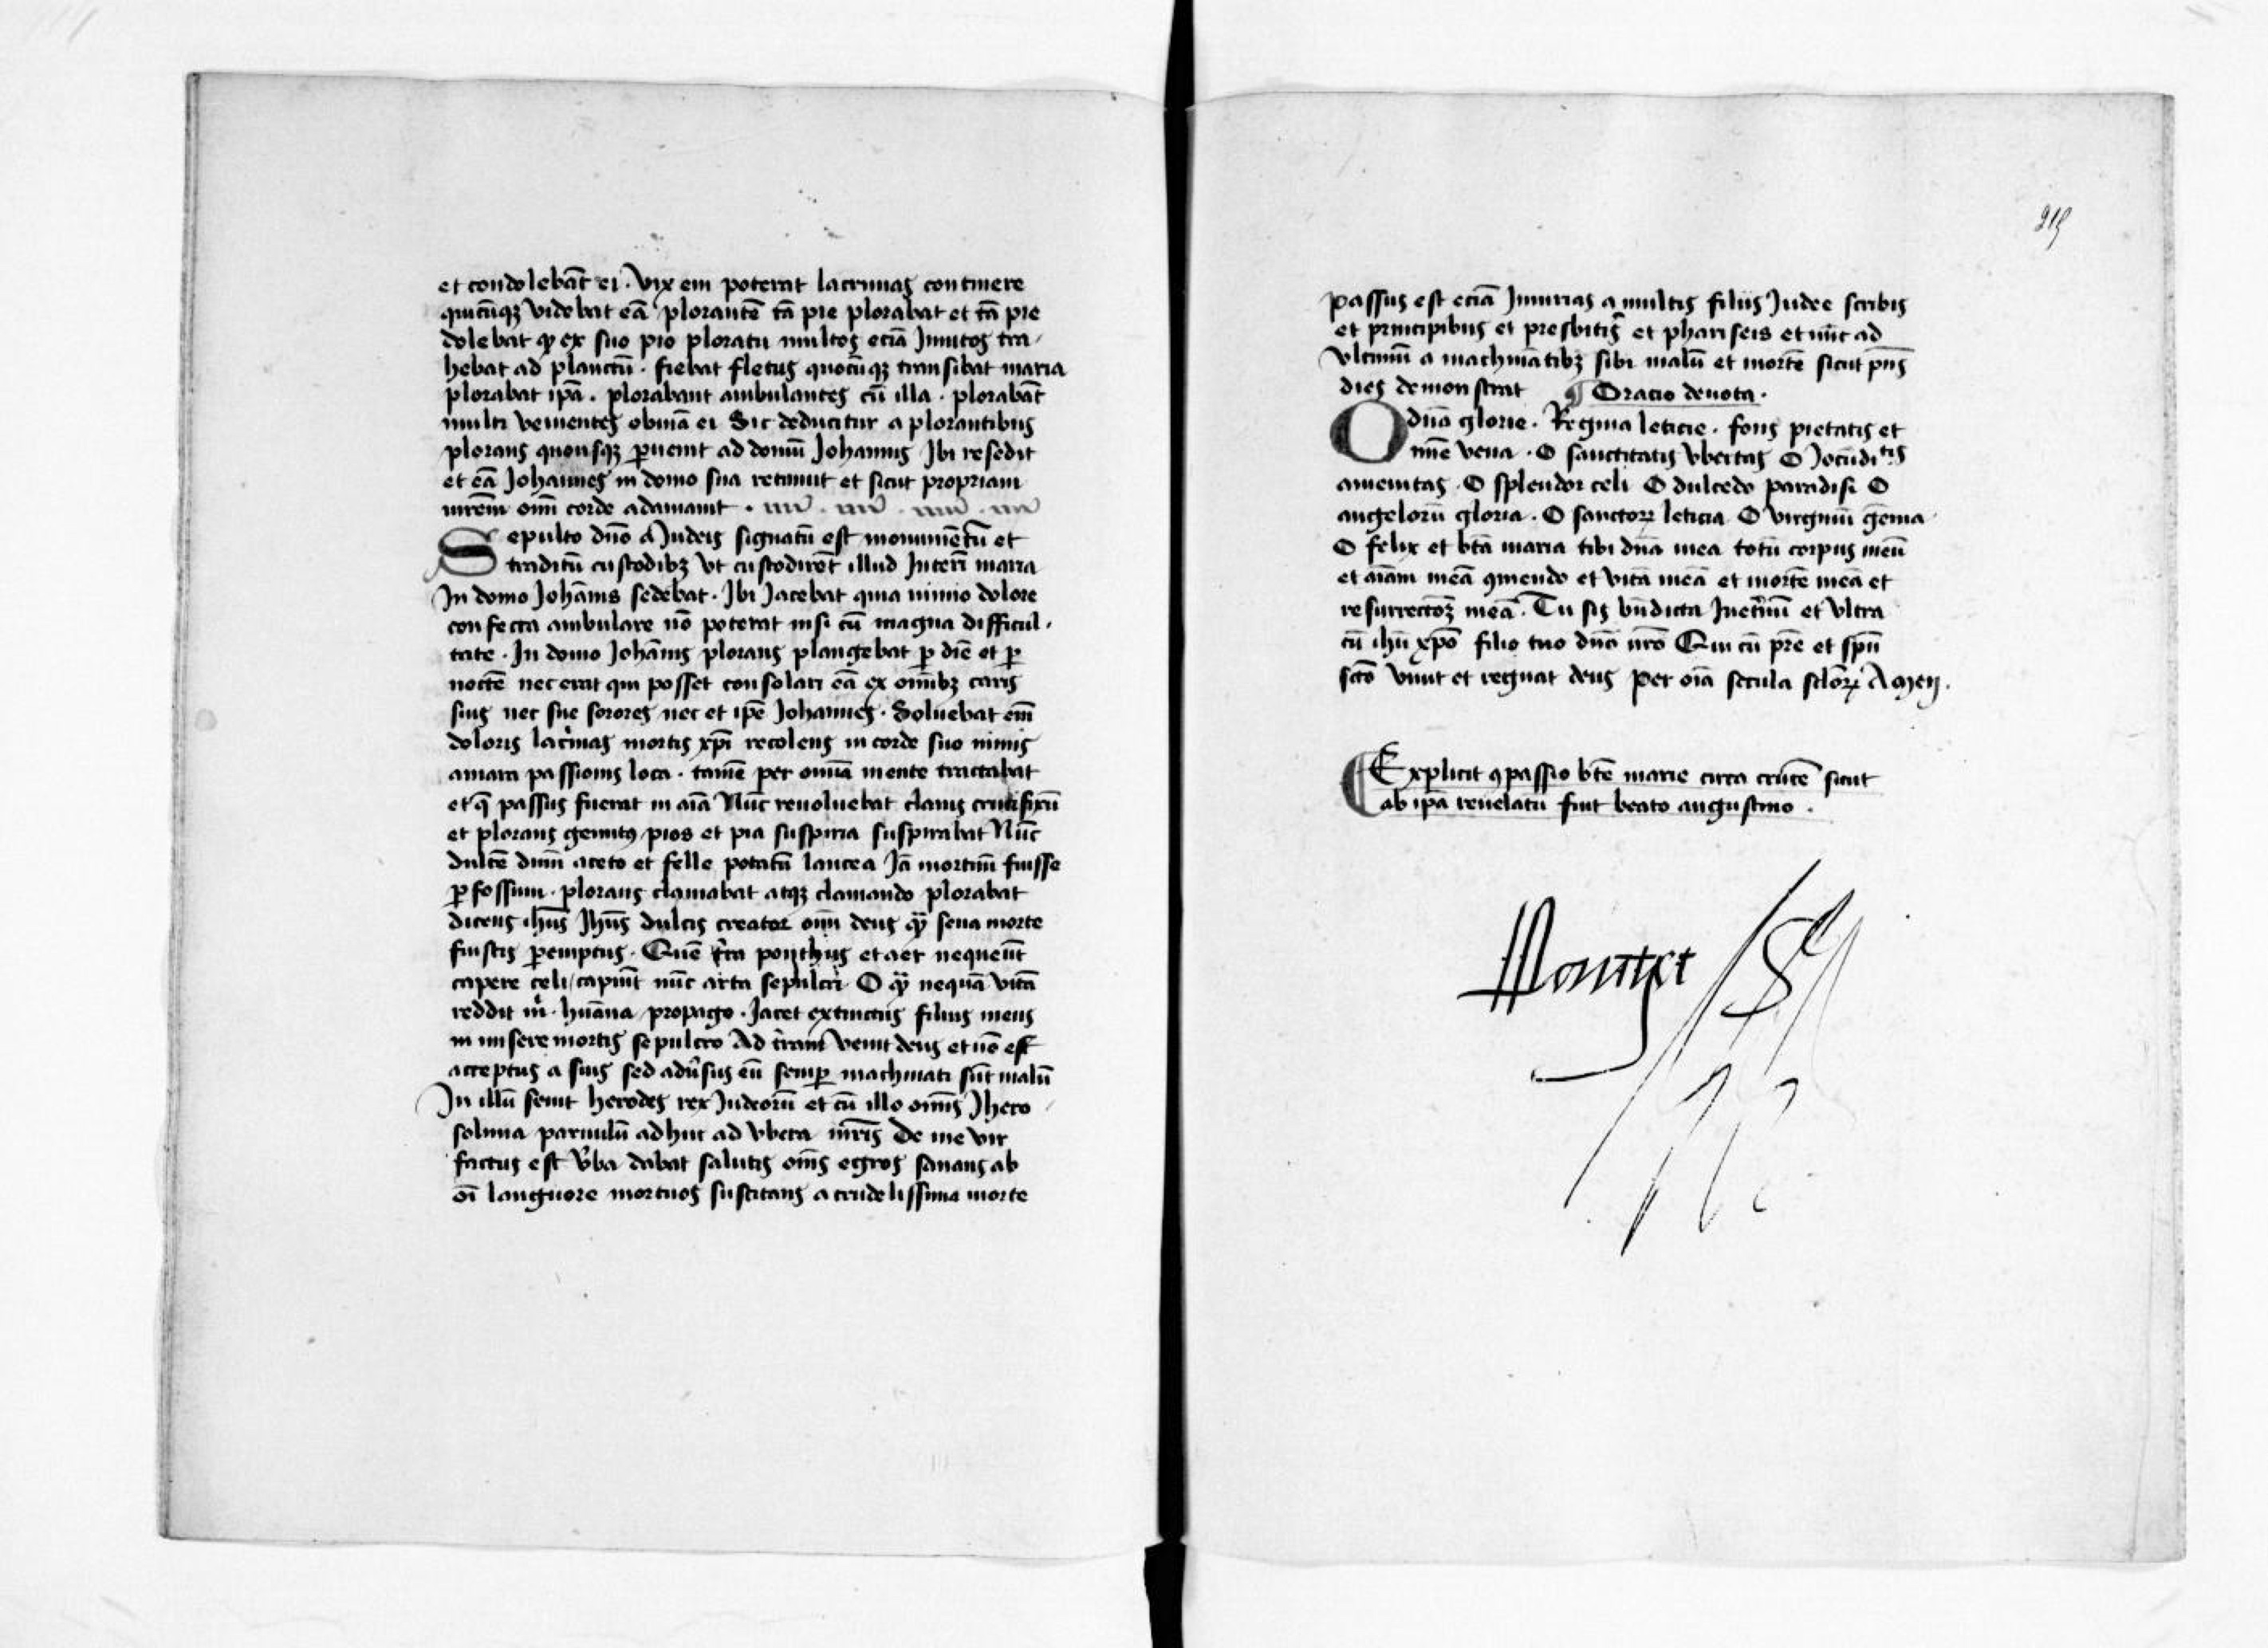 et condolebāt ei . vix em̄ poterat lacrimas continere
quicūqꝫ videbat eā plorantē tā pie plorabat et tā pie
dolebat ꝙ ex suo pio ploratu multos eciā Inuitos tra-
hebat ad planctū . fiebat fletus quocūqꝫ transibat maria
plorabat ip̄a . plorabant ambulantes cū illa . plorabāt
multi venientes obuiā ei Sic deducitur a plorantibus
plorans quousqꝫ ꝑuenit ad domū Johannis Ibi resedit
et eā Johannes in domo sua retinuit et sicut propriam
mr̄em om̄i corde adamauit .
Sepulto dn̄o a Iudeis signatū est monumētū et
traditū custodibꝫ vt custodirēt illud Interī maria
In domo Johānis sedebat . Ibi Iacebat quia nimio dolore
confecta ambulare nō poterat nisi cū magna difficul-
tate . In domo Johānis plorans plangebat ꝑ diē et ꝑ
noctē nec erat qui posset consolari eā ex om̄ibꝫ caris
suis nec sue sorores nec et ip̄e Johannes . Soluebat em̄
doloris lac̓mas mortis xp̄i recolens in corde suo nimis
amara passionis loca . tamē per om̄ia mente tractabat
et q̄ passus fuerat in aīa Nūc reuoluebat clauis crucifixū
et plorans gemitꝰ pios et pia suspiria suspirabat Nūc
dulcē dn̄m aceto et felle potatū lancea Iā mortuū fuisse
ꝑfossum . plorans clamabat atqꝫ clamando plorabat
dicens ihūs Ihūs dulcis creator om̄i deus ꝙ̄ seua morte
fuistis ꝑemptus . Quē t̓ra ponthus et aer nequeūt
capere celi / capiūt nūc arta sepulcri O ꝙ̄ nequā vitā
reddit m̓ . huāna propago . Iacet extinctus filius meus
in misere mortis sepulcro Ad t̓ram venit deus et nō est
acceptus a suis sed adūsus eū semꝑ machinati sūt malū
In illū seuit herodes rex Iudeorū et cū illo om̄is Ihero-
solima paruulū adhuc ad vbera mr̄is De me vir
factus est v̓ba dabat salutis om̄s egros sanans ab
oī languore mortuos suscitans a crudelissima morte
219
passus est eciā Iniurias a multis filiis Iudee scribis
et principibus et presbit̓is et phariseis et nūc ad
vltimū a machinātibꝫ sibi malū et mortē sicut p̄ns
dies demonstrat ¶ Oracio deuota .
O dn̄a glorie . Regina leticie . fons pietatis et
mīe vena . O sanctitatis vbertas O Iocūdi tis
amenitas . O splendor celi O dulcedo paradisi O
angelorū gloria . O sanctorꝝ leticia O virginū gēma
O felix et bt̄a maria tibi dn̄a mea totū corpus meū
et aīam meā ꝯmendo et vitā meā et mortē meā et
resurrectōꝫ meā . Tu sis bn̄dicta Inet̓nū et vltra
cū ihū xp̄o filio tuo dn̄o nr̄o Qui cū pr̄e et sp̄u
sc̄o viuit et regnat deus per oīa secula sc̄lorꝝ Amen .
¶ Explicit ꝯpassio bt̄e marie circa crucē sicut
ab ip̄a reuelatū fuit beato augustino .